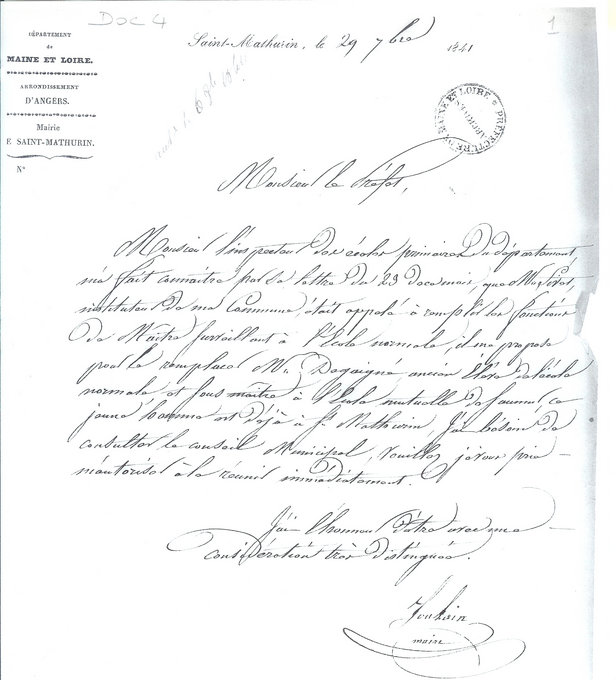 DOC 4
1
DÉPARTEMENT
de
MAINE ET LOIRE.
ARRONDISSEMENT
D'ANGERS.
Mairie
E SAINT-MATHURIN.
N°
Saint-Mathurin, le 29 7bre 1841
PRÉFECTURE DE MAINE ET LOIRE
Monsieur le Préfet,
Monsieur l'inspecteur des écoles primaires du département,
m'a fait connaître par sa lettre du 23 de ce mois, que Mr
instituteur de ma Commune était appelé à remplir les fonctions
de Maître surveillant à l'Ecole normale, il me propose
pour le remplacer Mr. Degaigné ancien élève de l'école
normale et sous maître à l'Ecole mutuelle de Saumur, ce
jeune homme est déjà à St Mathurin, J'ai besoin de
consulter le conseil Municipal, veuillez je vous prie
m'autoriser à le réunir immédiatement.
J'ai l'honneur d'être avec une
considération très distinguée.
maire